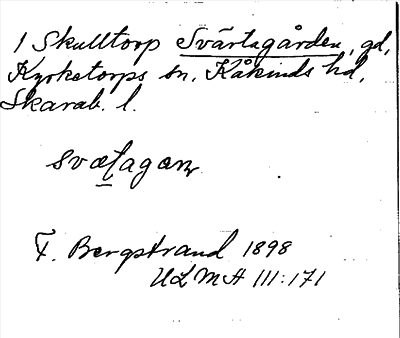 1 Skulltorp Svärtagården, gd,
Kyrketorps sn, Kåkinds hd,
Skarab. l.
svætagæn
F. Bergstrand 1898
ULMA III:171